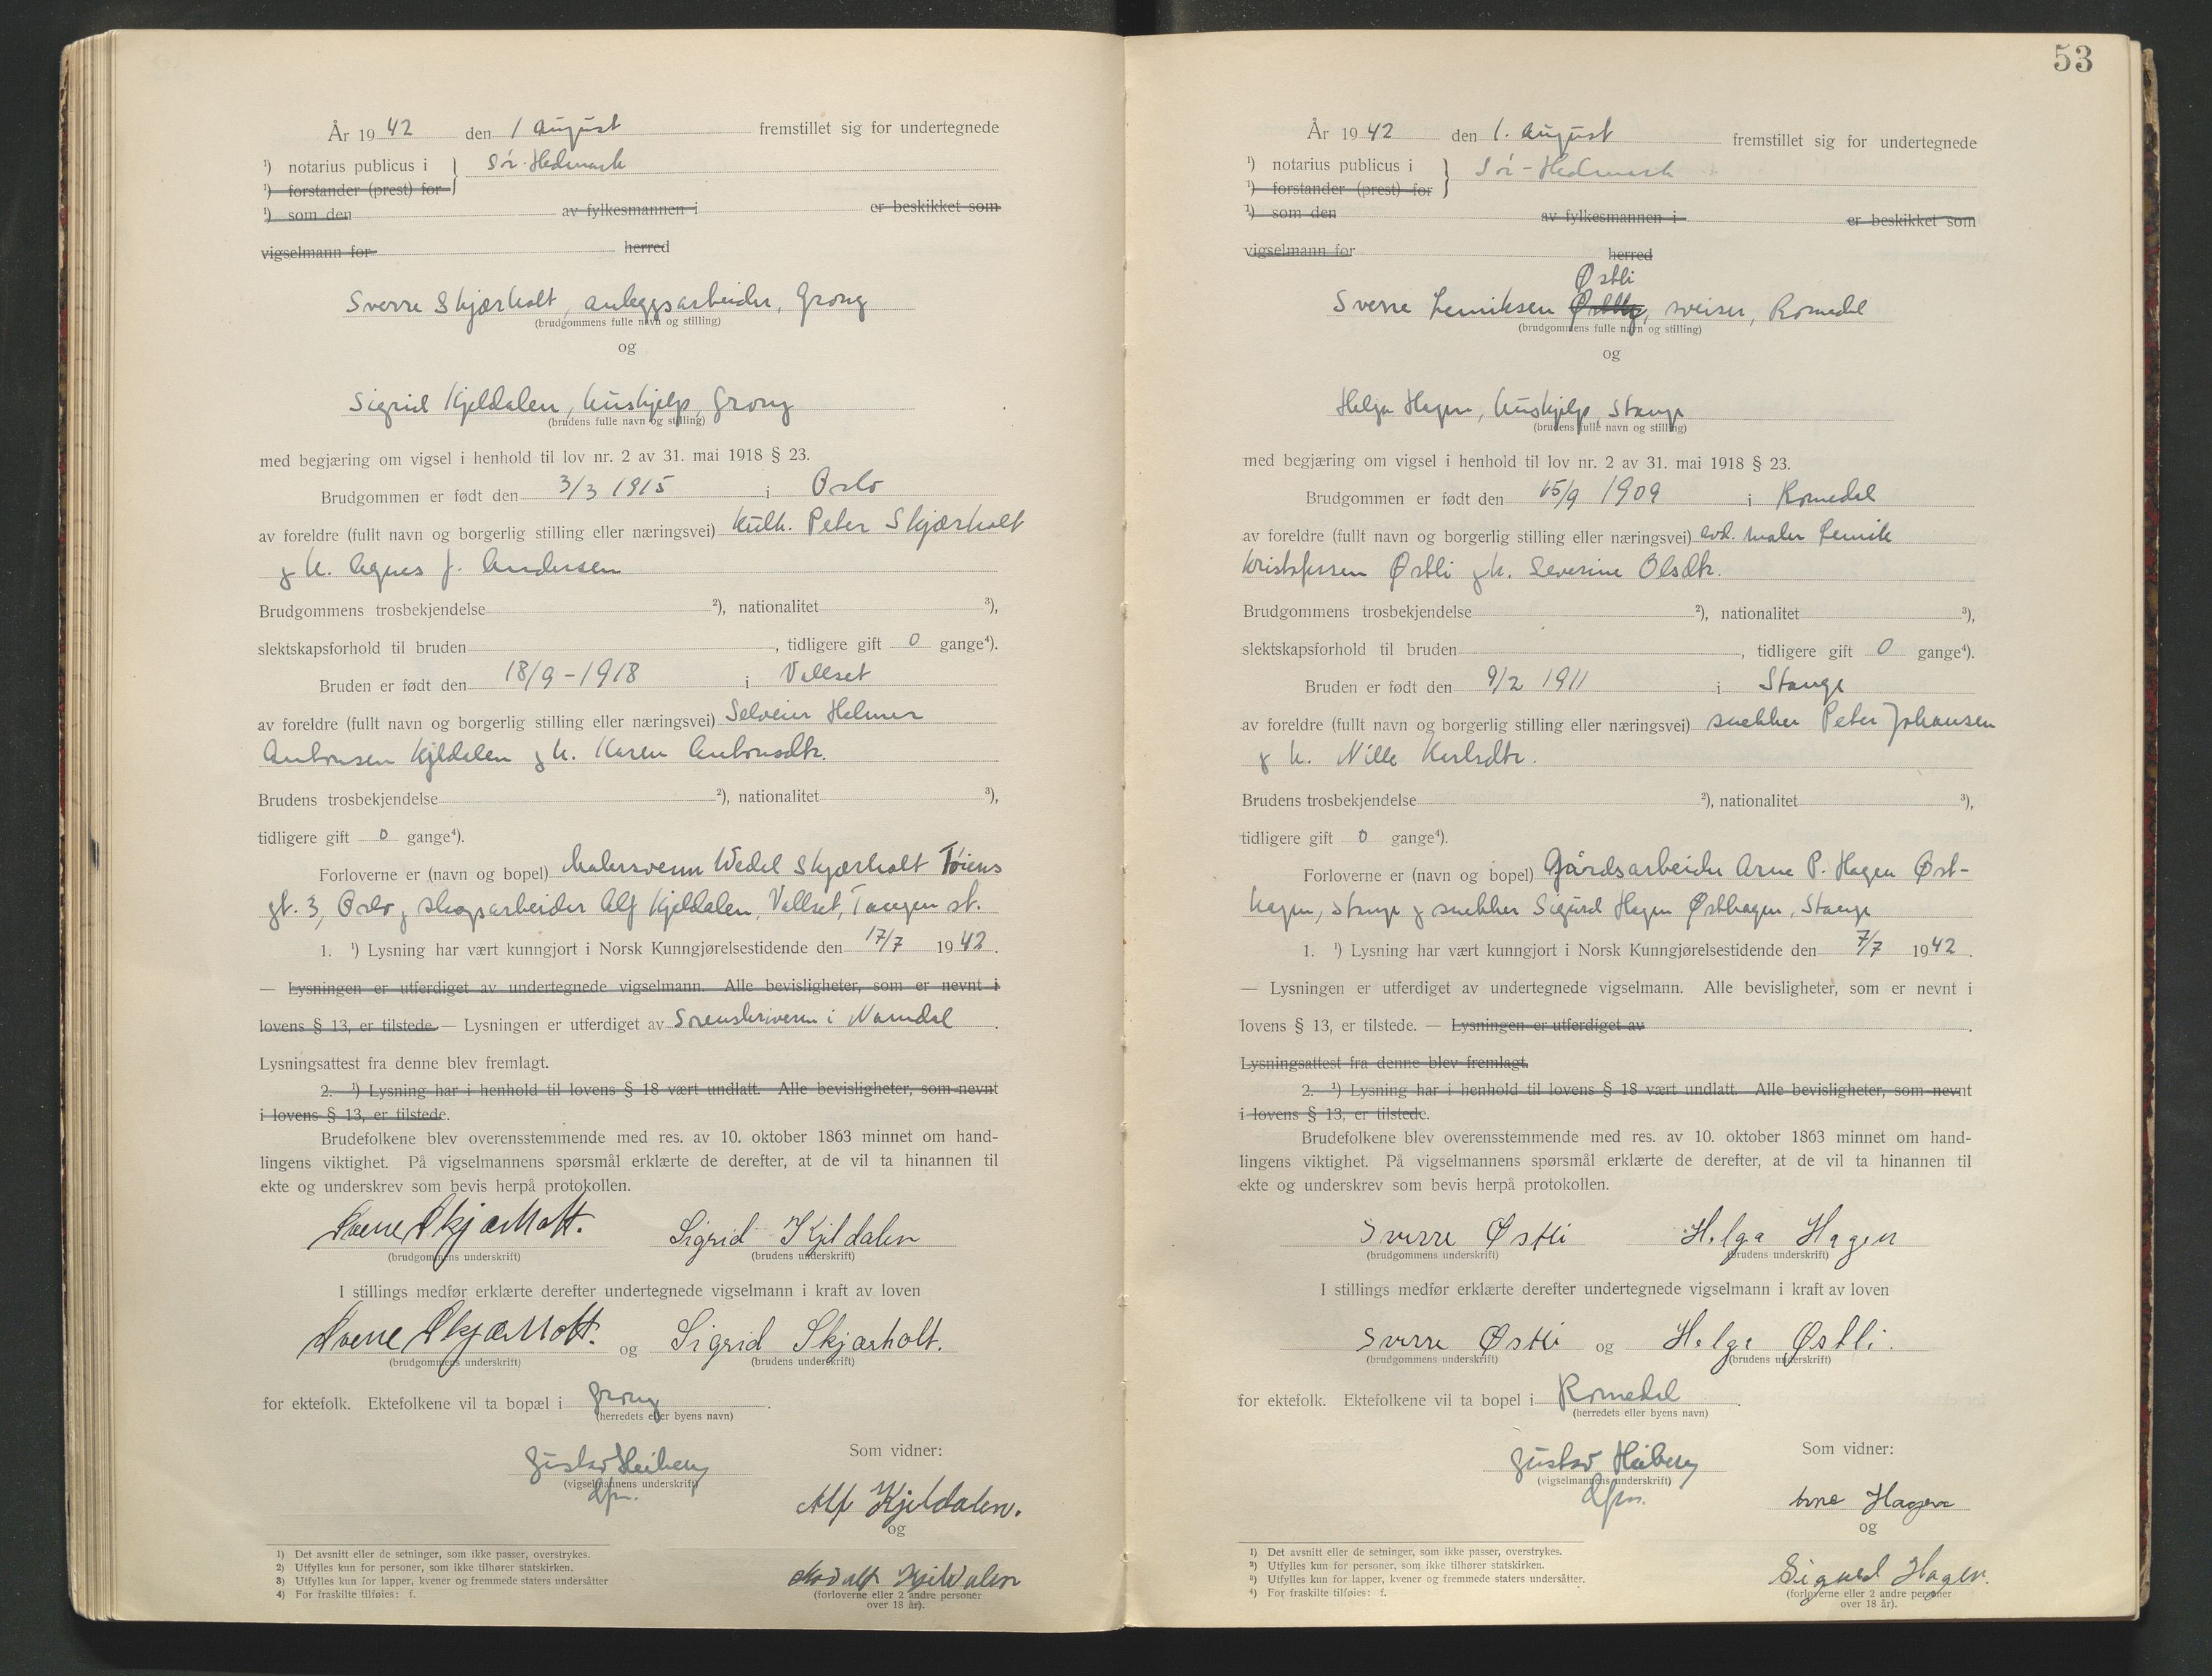 År 1942 den 1 August fremstillet sig for undertegnede
¹) notarius publicus i } Sør-Hedmark
¹) forstander (prest) for
¹) som den av fylkesmannen i er beskikket som
vigselmann for herred
Sverre Skjærholt, anleggsarbeider, Grong
(brudgommens fulle navn og stilling)
og
Sigrid Kjeldalen, hushjelp, Grong
(brudens fulle navn og stilling)
med begjæring om vigsel i henhold til lov nr. 2 av 31. mai 1918 § 23.
Brudgommen er født den 3/3 1915 i Oslo
av foreldre (fullt navn og borgerlig stilling eller næringsvei) Peter Skjærholt
og h. Agnes J. Andersen
Brudgommens trosbekjendelse ²), nationalitet ³),
slektskapsforhold til bruden , tidligere gift 0 gange⁴).
Bruden er født den 18/9 - 1918 i Vallset
av foreldre (fullt navn og borgerlig stilling eller næringsvei) Selveier Helmer
Antonsen Kjeldalen og h. Karen Antonsdtr.
Brudens trosbekjendelse ²), nationalitet ³),
tidligere gift 0 gange⁴).
Forloverne er (navn og bopel) Malersvenn Wedel Skjærholt Tøiens
gt. 3, Oslo og skogsarbeider Alf Kjeldalen, Vallset, Tangen st.
1. ¹) Lysning har vært kunngjort i Norsk Kunngjørelsestidende den 17/7 1942.
— Lysningen er utferdiget av undertegnede vigselmann. Alle bevisligheter, som er nevnt i
lovens § 13, er tilstede. — Lysningen er utferdiget av Sorenskriveren i Namdal.
Lysningsattest fra denne blev fremlagt.
2. ¹) Lysning har i henhold til lovens § 18 vært undlatt. Alle bevisligheter, som nevnt
i lovens § 13, er tilstede.
Brudefolkene blev overensstemmende med res. av 10. oktober 1863 minnet om hand-
lingens viktighet. På vigselmannens spørsmål erklærte de derefter, at de vil ta hinannen til
ekte og underskrev som bevis herpå protokollen.
Sverre Skjærholt. Sigrid Kjeldalen
(brudgommens underskrift) (brudens underskrift)
I stillings medfør erklærte derefter undertegnede vigselmann i kraft av loven
Sverre Skjærholt. og Sigrid Skjærholt.
(brudgommens underskrift) (brudens underskrift)
for ektefolk. Ektefolkene vil ta bopæl i Grong.
(herredets eller byens navn)
Som vidner:
Gustav Heiberg
(vigselmannens underskrift)
dfm.
Alf Kjeldalen.
og
Kjeldalen
(forloverne eller 2 andre personer
over 18 år).
1) Det avsnitt eller de setninger, som ikke passer, overstrykes.
2) Utfylles kun for personer, som ikke tilhører statskirken.
3) Utfylles kun for lapper, kvener og fremmede staters undersåtter
4) For fraskilte tilføies: f.
53
År 1942 den 1. August fremstillet sig for undertegnede
¹) notarius publicus i } Sør-Hedmark
¹) forstander (prest) for
¹) som den av fylkesmannen i er beskikket som
vigselmann for herred
Østli
Sverre Lemiksen Østby, sveiser, Romedal
(brudgommens fulle navn og stilling)
og
Helga Hagen, hushjelp, Stange
(brudens fulle navn og stilling)
med begjæring om vigsel i henhold til lov nr. 2 av 31. mai 1918 § 23.
Brudgommen er født den 15/9 1909 i Romedal
av foreldre (fullt navn og borgerlig stilling eller næringsvei) avd. maler Lemik
Kristofersen Østli og h. Severine Olsdtr.
Brudgommens trosbekjendelse ²), nationalitet ³),
slektskapsforhold til bruden , tidligere gift 0 gange⁴).
Bruden er født den 9/2 1911 i Stange
av foreldre (fullt navn og borgerlig stilling eller næringsvei) snekker Peter Johansen
og h. Nille Karlsdtr.
Brudens trosbekjendelse ²), nationalitet ³),
tidligere gift 0 gange⁴).
Forloverne er (navn og bopel) Gårdsarbeider Arne P. Hagen Øst-
hagen, Stange og snekker Sigurd Hagen Østhagen, Stange
1. ¹) Lysning har vært kunngjort i Norsk Kunngjørelsestidende den 7/7 1942.
— Lysningen er utferdiget av undertegnede vigselmann. Alle bevisligheter, som er nevnt i
lovens § 13, er tilstede. — Lysningen er utferdiget av .
Lysningsattest fra denne blev fremlagt.
2. ¹) Lysning har i henhold til lovens § 18 vært undlatt. Alle bevisligheter, som nevnt
i lovens § 13, er tilstede.
Brudefolkene blev overensstemmende med res. av 10. oktober 1863 minnet om hand-
lingens viktighet. På vigselmannens spørsmål erklærte de derefter, at de vil ta hinannen til
ekte og underskrev som bevis herpå protokollen.
Sverre Østli Helga Hagen
(brudgommens underskrift) (brudens underskrift)
I stillings medfør erklærte derefter undertegnede vigselmann i kraft av loven
Sverre Østli og Helga Østli.
(brudgommens underskrift) (brudens underskrift)
for ektefolk. Ektefolkene vil ta bopel i Romedal.
(herredets eller byens navn)
Som vidner:
Gustav Heiberg
(vigselmannens underskrift)
dfm.
Arne Hagen
og
Sigurd Hagen.
(forloverne eller 2 andre personer
over 18 år).
¹) Det avsnitt eller de setninger, som ikke passer, overstrykes.
²) Utfylles kun for personer, som ikke tilhører statskirken.
³) Utfylles kun for lapper, kvener og fremmede staters undersåtter.
⁴) For fraskilte tilføies: f.